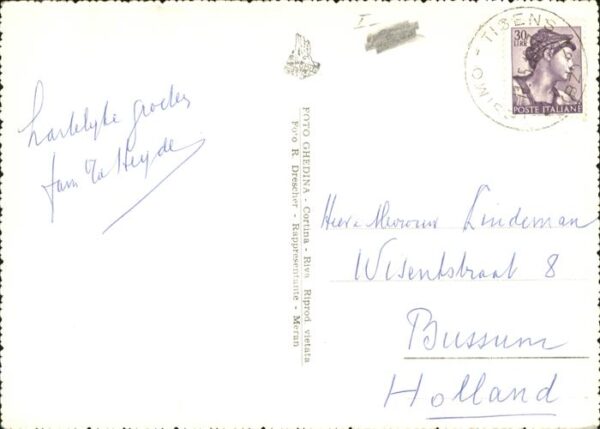 Hartelijke groeten
fam. v/d Heyde
I
FOTO GHEDINA - Cortina - Riva Riprod. vietata
Foto R. Drescher - Rappresentante - Meran
TISENS
30
LIRE
POSTE ITALIANE
Heer & Mevrouw Lindeman
Wisentstraat 8
Bussum
Holland